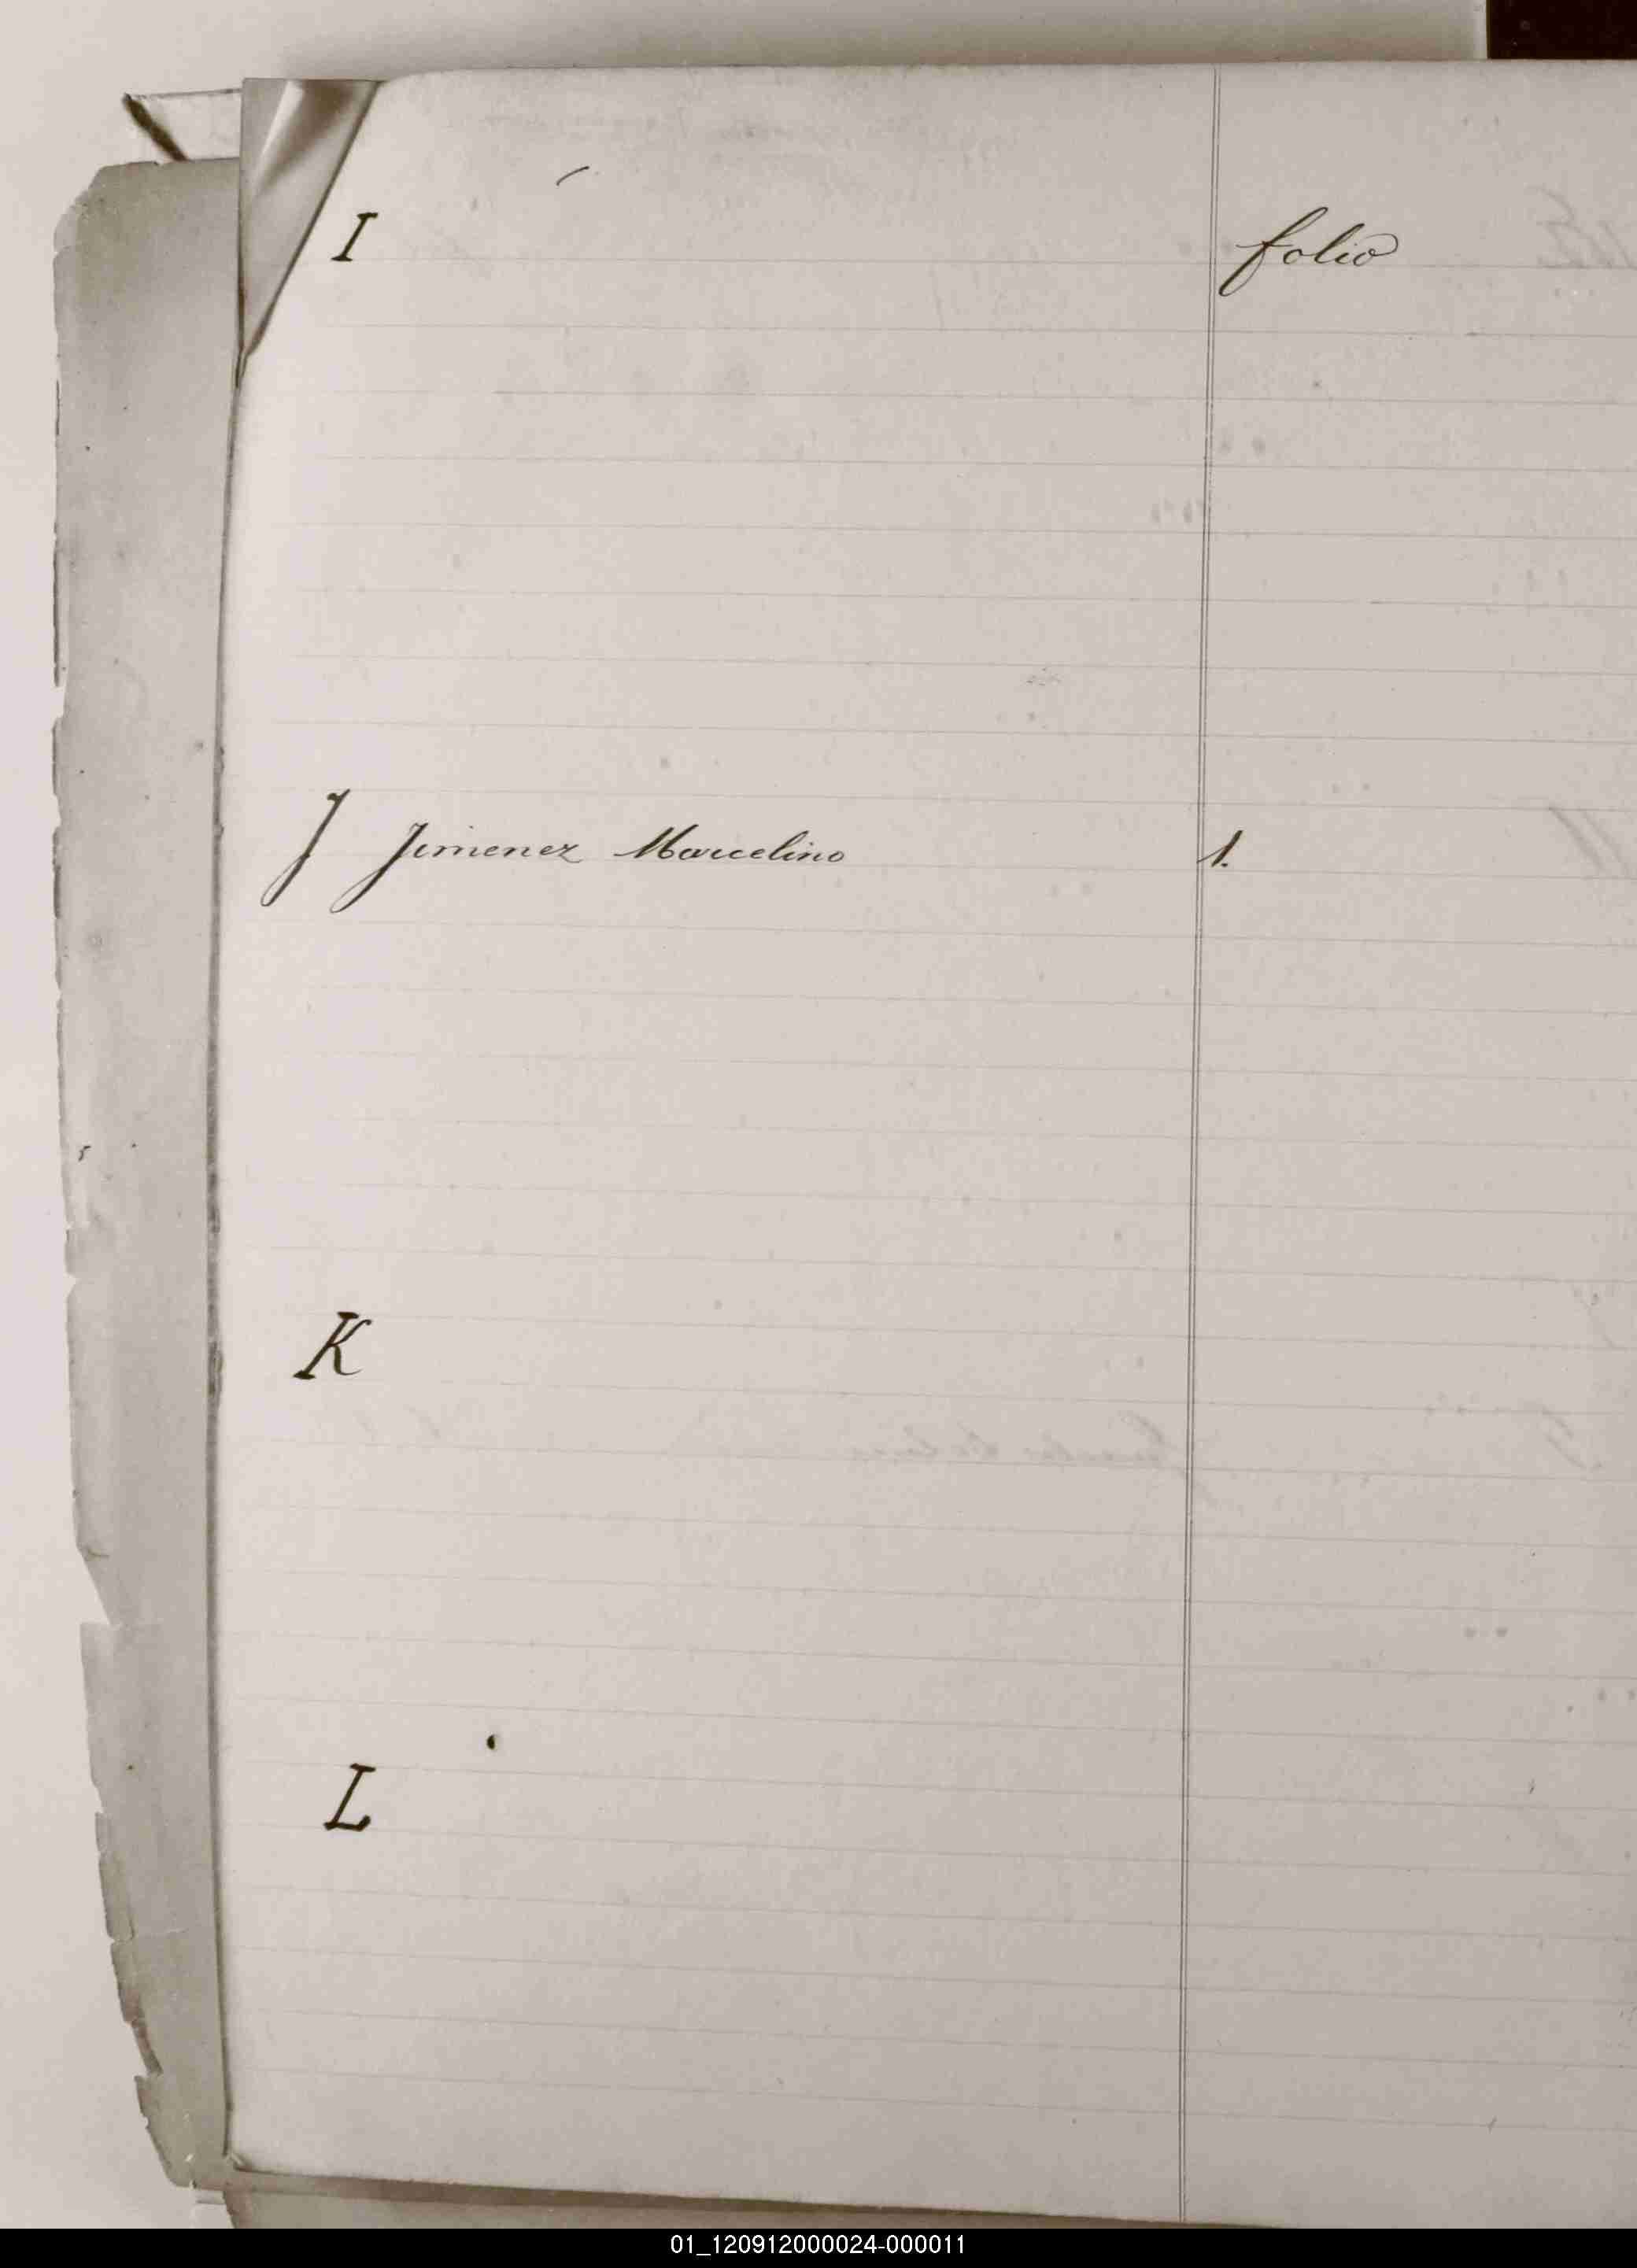 I folio
J Jimenez Marcelino 1.
K
L
01_120912000024-000011